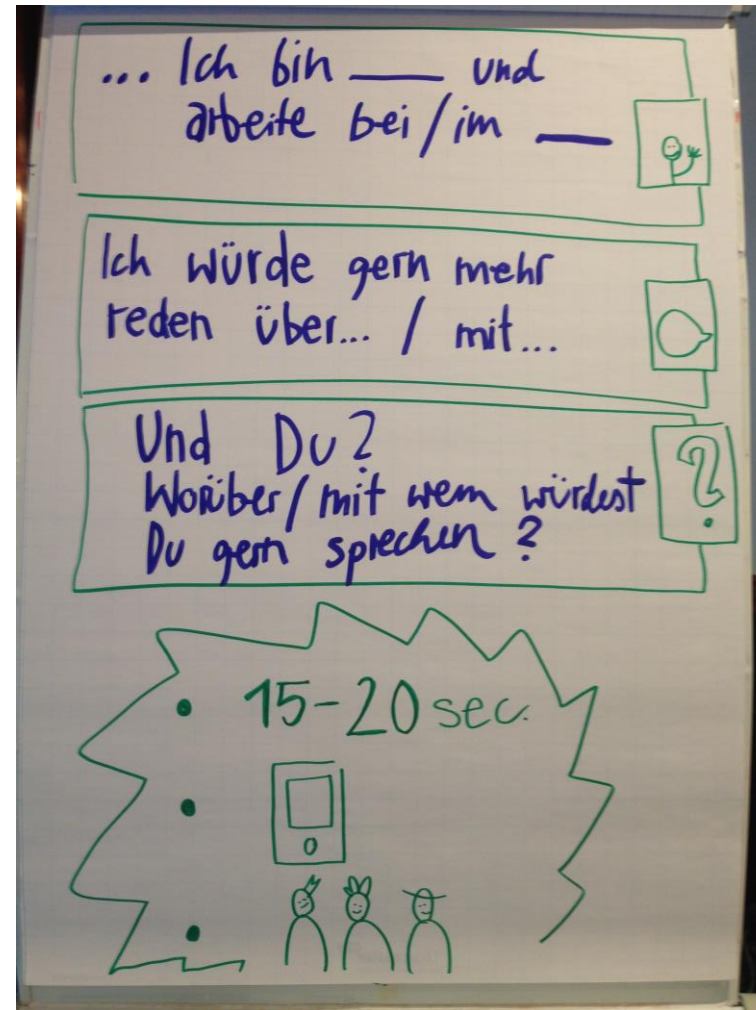 ... Ich bin ___ und
arbeite bei/im ___
Ich würde gern mehr
reden über... / mit...
Und Du?
Worüber/mit wem würdest
Du gern sprechen?
?
• 15-20 sec.
•
•